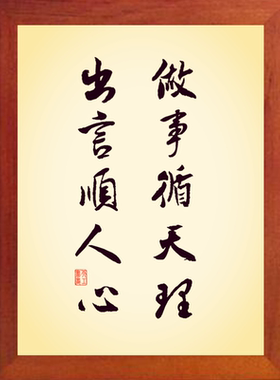 做事循天理
出言順人心